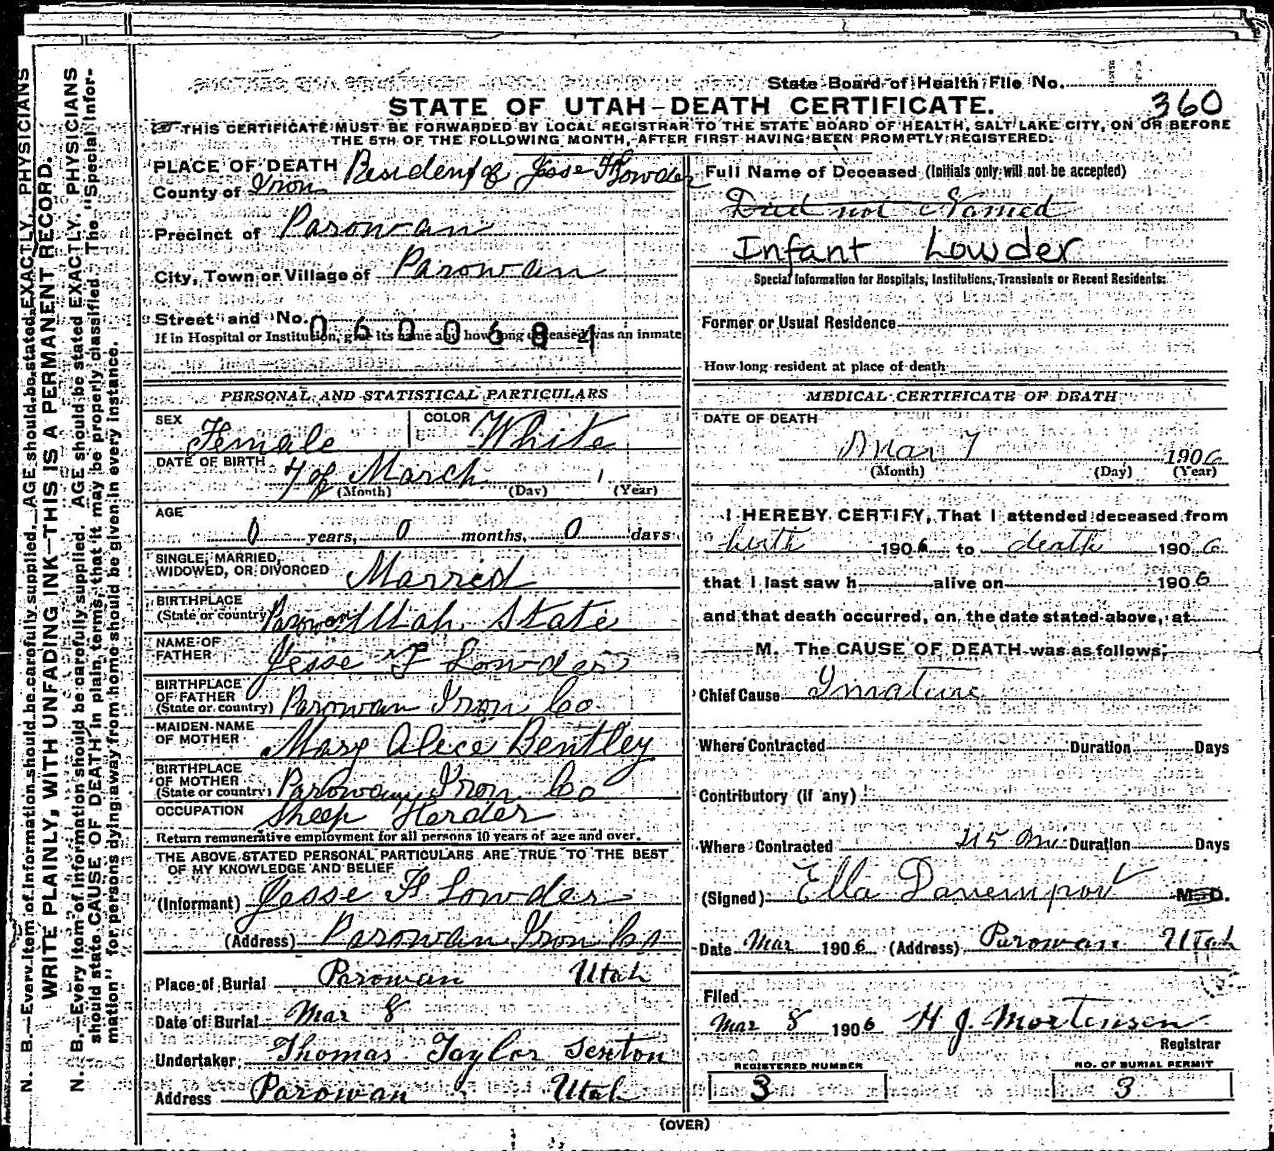 State Board of Health File No.
360
STATE OF UTAH-DEATH CERTIFICATE.
THIS CERTIFICATE MUST BE FORWARDED BY LOCAL REGISTRAR TO THE STATE BOARD OF HEALTH, SALT LAKE CITY, ON OR BEFORE
THE 5TH OF THE FOLLOWING MONTH, AFTER FIRST HAVING BEEN PROMPTLY REGISTERED.
PLACE OF DEATH Resident of Jesse F Lowder
County of Iron
Precinct of Parowan
City, Town or Village of Parowan
Street and No.
0600684
If in Hospital or Institution, give its name and how long deceased was an inmate
PERSONAL AND STATISTICAL PARTICULARS
SEX Female COLOR White
DATE OF BIRTH 7 of March 1
(Month) (Day) (Year)
AGE
0 years, 0 months, 0 days
SINGLE, MARRIED,
WIDOWED, OR DIVORCED Married
BIRTHPLACE
(State or country) Parowan Utah State
NAME OF
FATHER Jesse F Lowder
BIRTHPLACE
OF FATHER
(State or country) Parowan Iron Co
MAIDEN NAME
OF MOTHER Mary Alece Bentley
BIRTHPLACE
OF MOTHER
(State or country) Parowan Iron Co
OCCUPATION Sheep Herder
Return remunerative employment for all persons 10 years of age and over.
THE ABOVE STATED PERSONAL PARTICULARS ARE TRUE TO THE BEST
OF MY KNOWLEDGE AND BELIEF
(Informant) Jesse F Lowder
(Address) Parowan Iron Co
Place of Burial Parowan Utah
Date of Burial Mar 8
Undertaker Thomas Taylor Sexton
Address Parowan Utah
Full Name of Deceased (Initials only will not be accepted)
Died not Named
Infant Lowder
Special Information for Hospitals, Institutions, Transients or Recent Residents:
Former or Usual Residence
How long resident at place of death
MEDICAL CERTIFICATE OF DEATH
DATE OF DEATH
Mar 7 1906
(Month) (Day) (Year)
I HEREBY CERTIFY, That I attended deceased from
birth 1906 to death 1906
that I last saw h alive on 1906
and that death occurred, on the date stated above, at
M. The CAUSE OF DEATH was as follows;
Chief Cause Imature
Where Contracted Duration Days
Contributory (if any)
Where Contracted 45 mi Duration Days
(Signed) Ella Davenport M.D.
Date Mar 1906 (Address) Parowan Utah
Filed
Mar 8 1906 H J. Mortensen
Registrar
REGISTERED NUMBER
3
NO. OF BURIAL PERMIT
3
(OVER)
WRITE PLAINLY, WITH UNFADING INK—THIS IS A PERMANENT RECORD.
N. B.—Every item of information should be carefully supplied. AGE should be stated EXACTLY. PHYSICIANS
N. B.—Every item of information should be carefully supplied. AGE should be stated EXACTLY. PHYSICIANS
should state CAUSE OF DEATH in plain terms, that it may be properly classified. The "Special Infor-
mation" for persons dying away from home should be given in every instance.